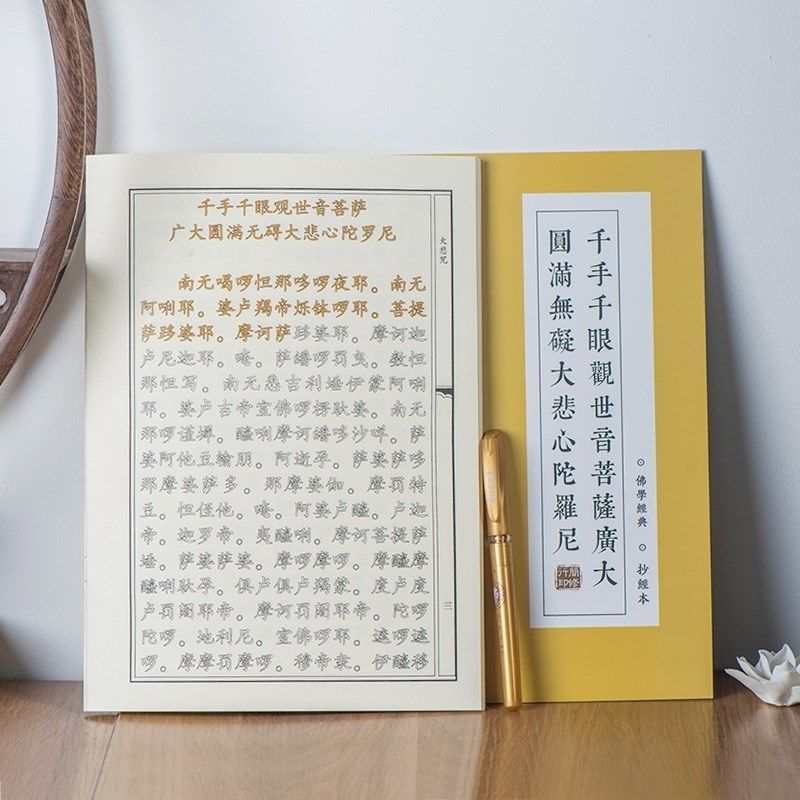 千手千眼观世音菩萨
广大圆满无碍大悲心陀罗尼
南无喝啰怛那哆啰夜耶。南无
阿唎耶。婆卢羯帝烁钵啰耶。菩提
萨跢婆耶。摩诃萨跢婆耶。摩诃迦
卢尼迦耶。唵。萨皤啰罚曳。数怛
那怛写。南无悉吉利埵伊蒙阿唎
耶。婆卢吉帝室佛啰楞驮婆。南无
那啰谨墀。醯唎摩诃皤哆沙咩。萨
婆阿他豆输朋。阿逝孕。萨婆萨哆
那摩婆萨多。那摩婆伽。摩罚特
豆。怛侄他。唵。阿婆卢醯。卢迦
帝。迦罗帝。夷醯唎。摩诃菩提萨
埵。萨婆萨婆。摩啰摩啰。摩醯摩
醯唎驮孕。俱卢俱卢羯蒙。度卢度
卢罚阇耶帝。摩诃罚阇耶帝。陀啰
陀啰。地利尼。室佛啰耶。遮啰遮
啰。摩摩罚摩啰。穆帝隶。伊醯移
大悲咒
三
千手千眼觀世音菩薩廣大
圓滿無礙大悲心陀羅尼
佛學經典 抄經本